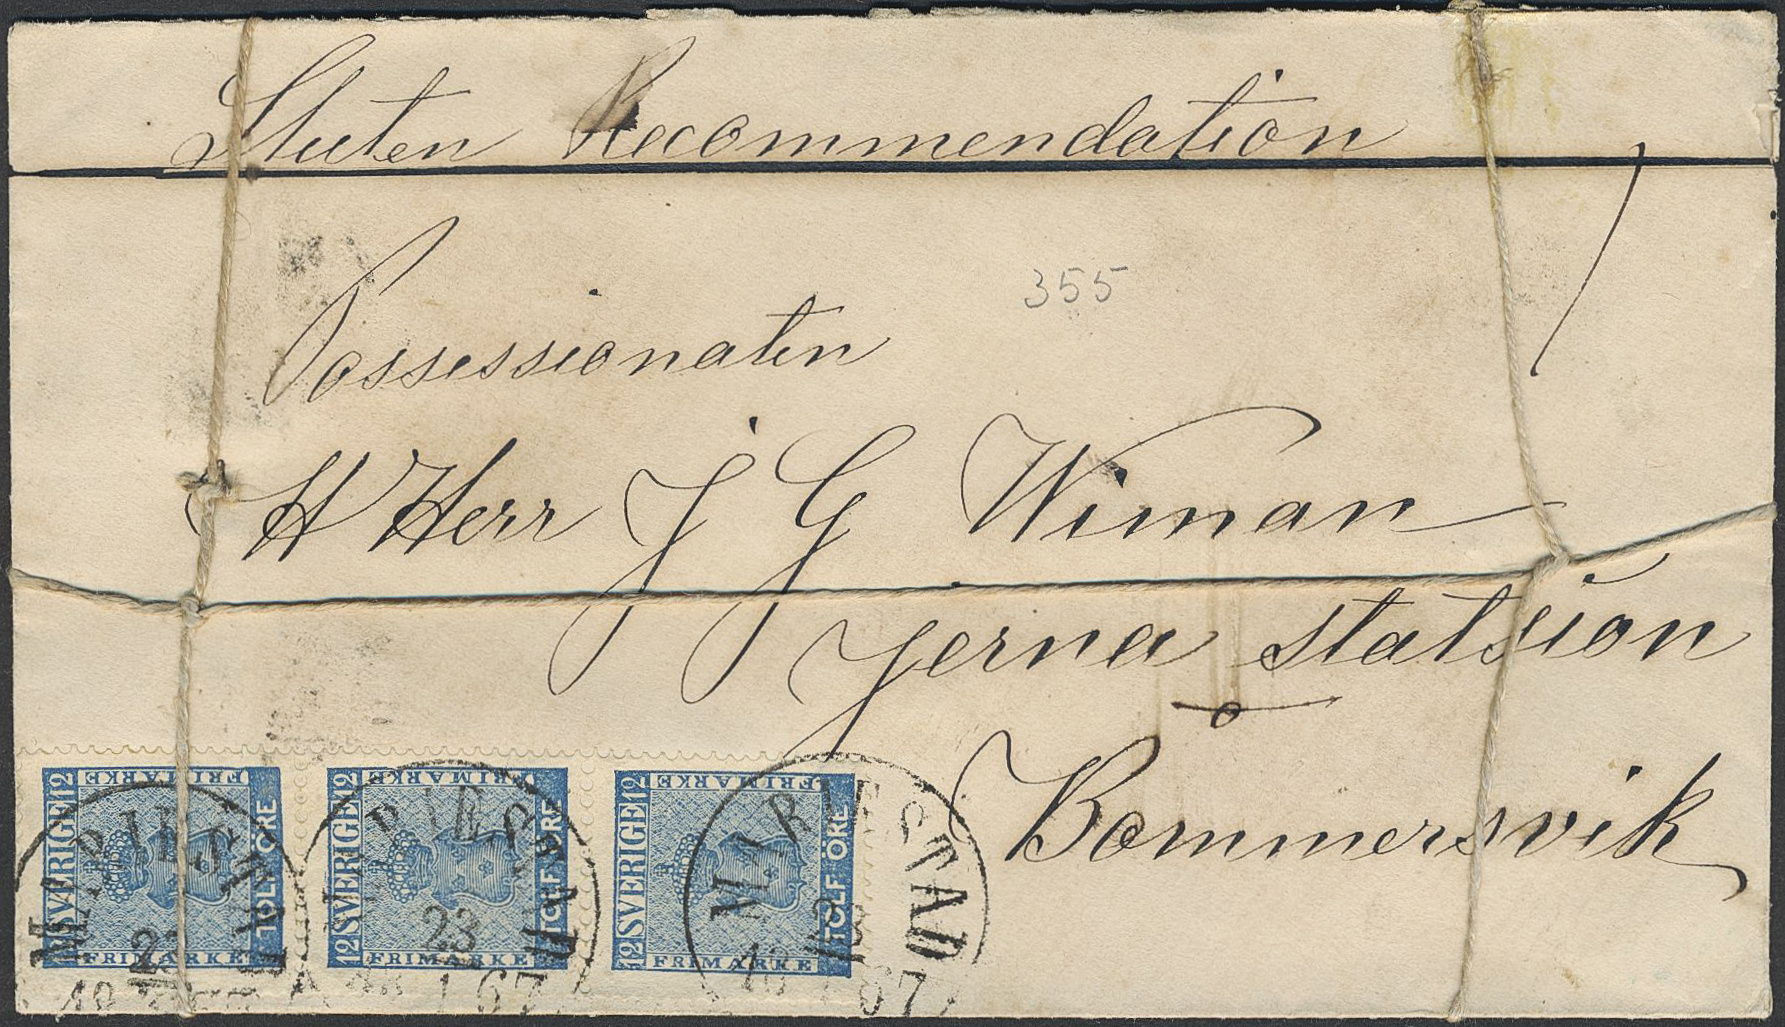 Sluten Recommendation
355
Possessionaten
H Herr J G Wiman
Jerna Statsion
Bommersvik
12 SVERIGE 12
FRIMÄRKE
TOLF ÖRE
FRIMÄRKE
12 SVERIGE 12
FRIMÄRKE
TOLF ÖRE
FRIMÄRKE
12 SVERIGE 12
FRIMÄRKE
TOLF ÖRE
FRIMÄRKE
MARIESTAD
MARIESTAD
23
1 67
MARIESTAD
23
67